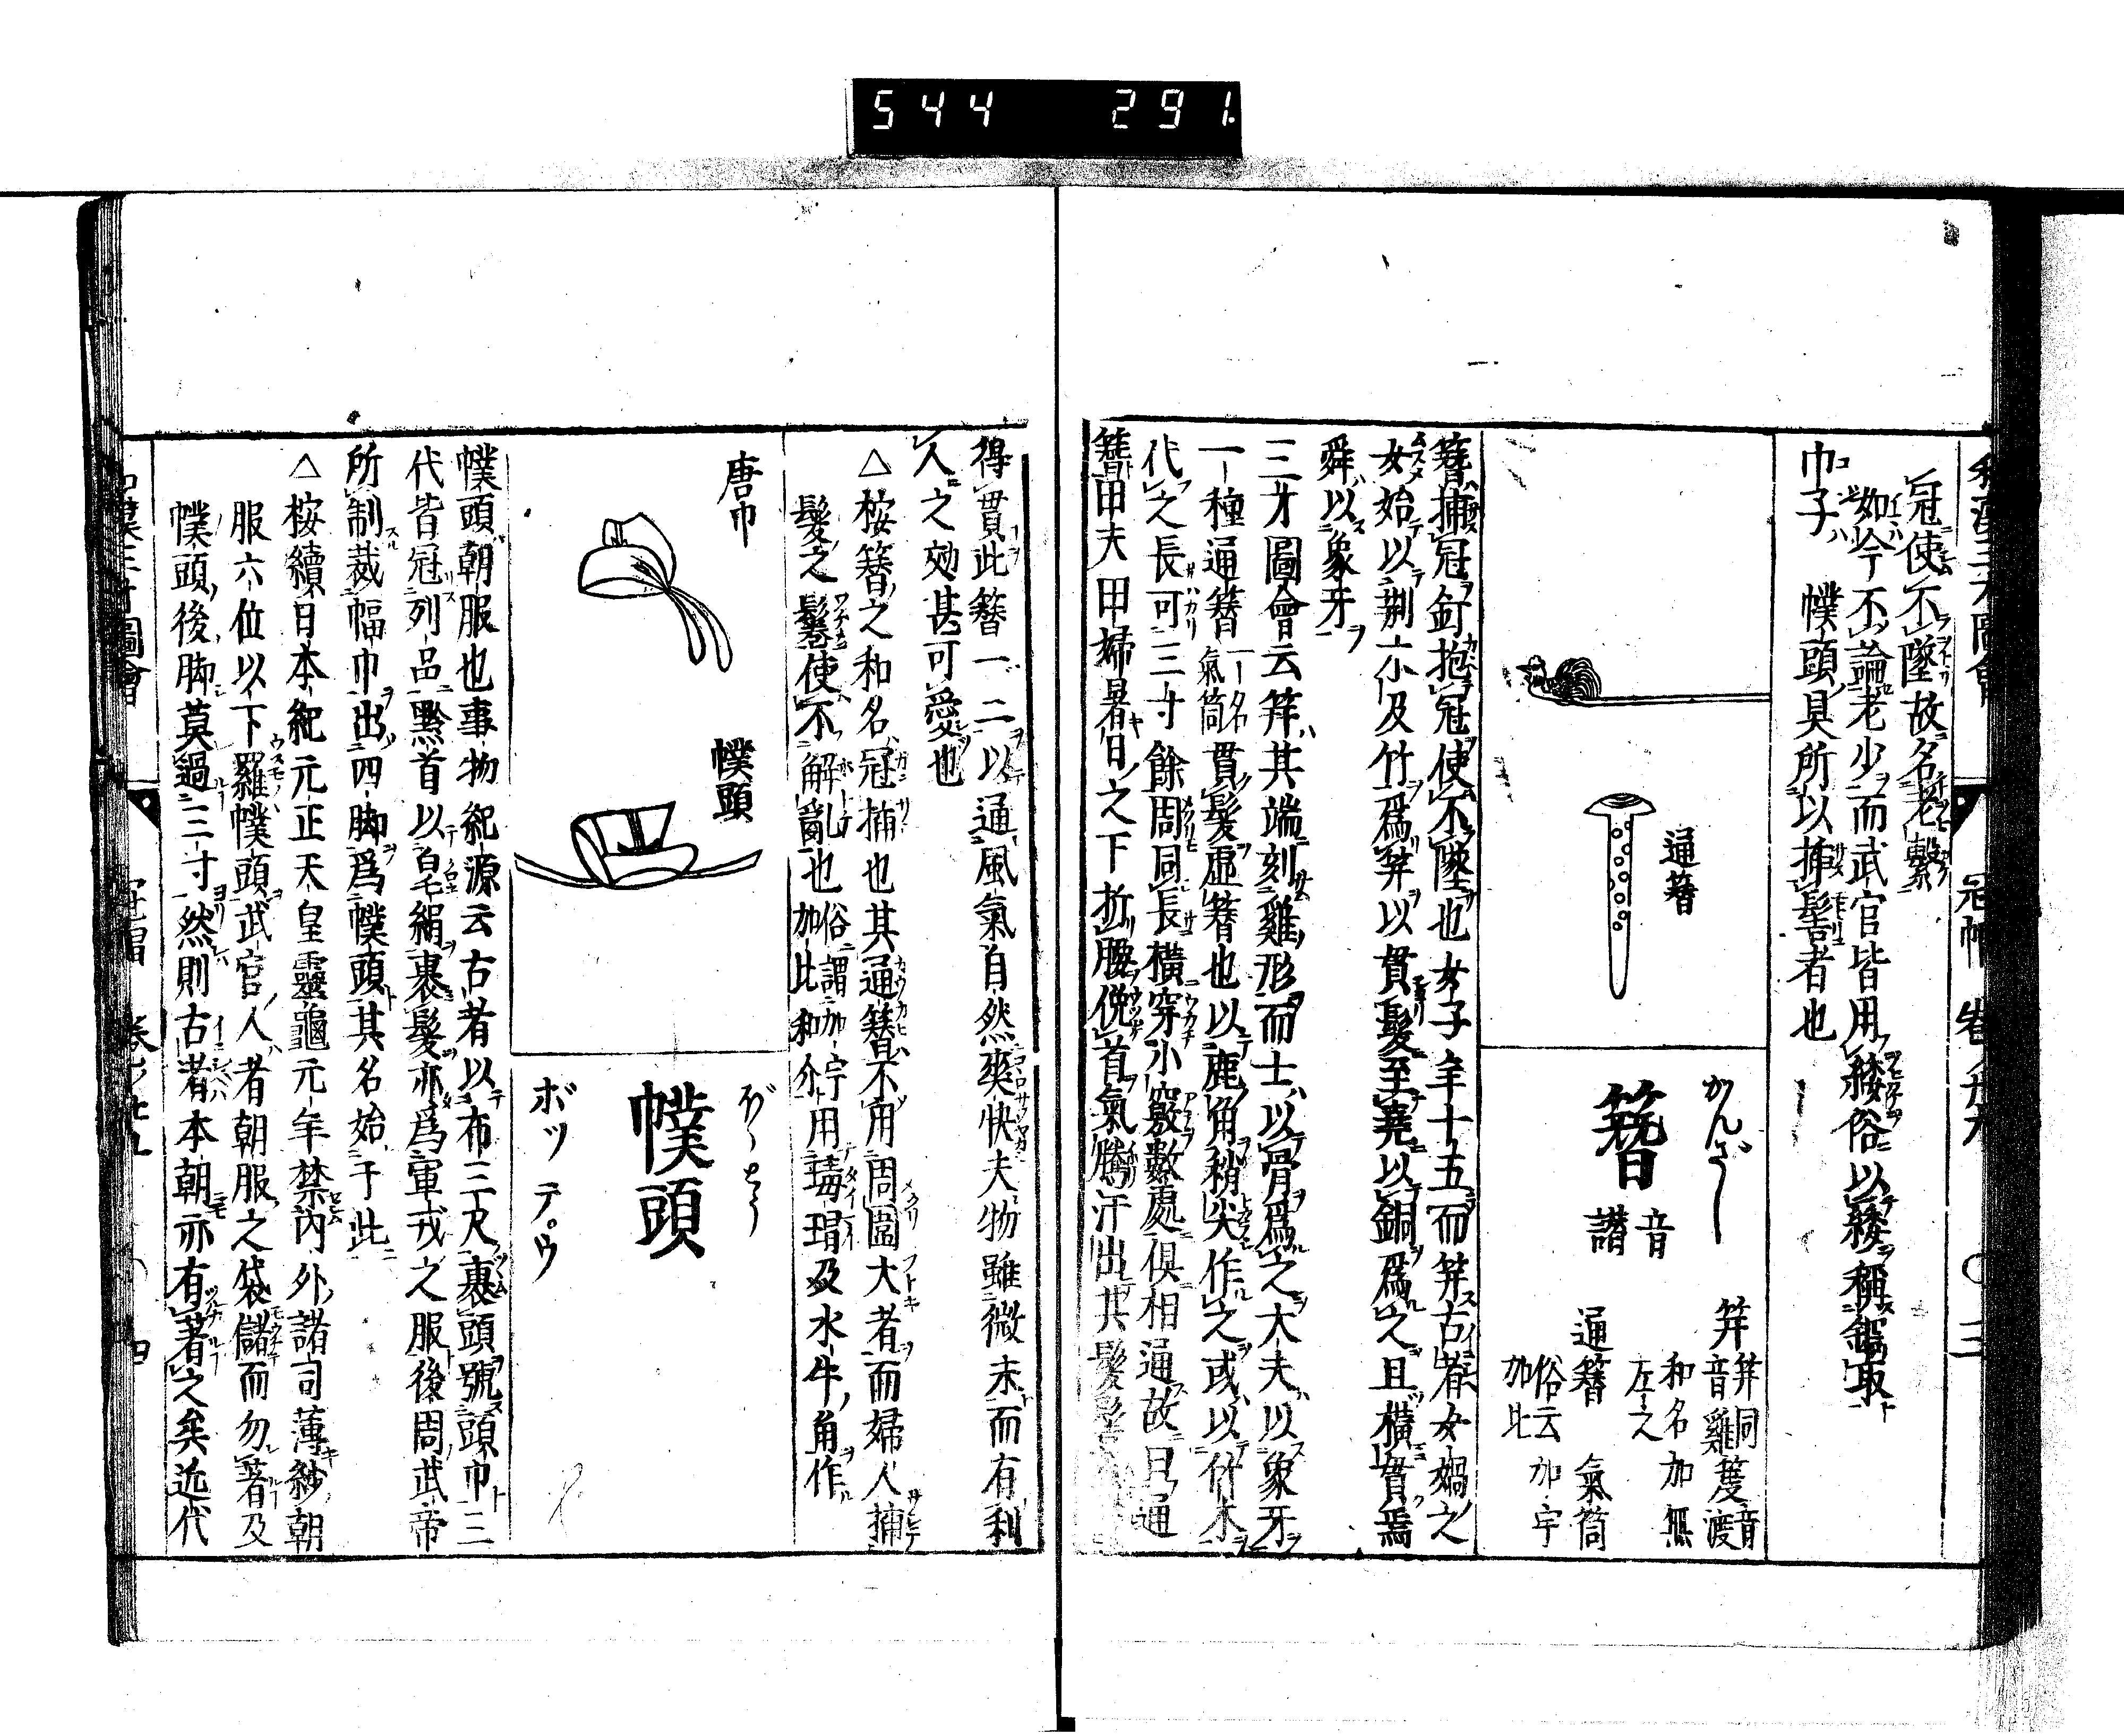 544 291
和漢三才圖會 冠帽 卷ノ廿九 〇三
冠使不墜故名老繫
如今不論老少而武官皆用緌俗以緌稱鍋取
巾子 幞頭具所以挿髻者也
通簪
かんざし
簪 音譛
笄 笄同 音雞 和名加無左之
通簪 氣筒 俗云加宇加比
簪揷冠釘抱冠使不墜也女子年十五而笄古者女媧之
女始以荆木及竹爲笄以貫髮至堯以銅爲之且横貫焉
舜以象牙
三才圖會云笄其端刻雞形而士以骨爲之大夫以象牙
一種通簪 一名氣筒 貫髮虛簪也以鹿角稍尖作之或以竹木
代之長可三寸餘周同長横穿小竅數處俱相通故曰通
簪田夫田婦暑日之下折腰俛首氣騰汗出其髮髻
得貫此簪一二以通風氣自然爽快夫物雖微末而有利
人之効甚可愛也
△桉簪之和名冠揷也其通簪不用周圍大者而婦人揷
髮之鬈使不解亂也 俗謂加宇加比 和介 用瑇瑁及水牛角作
唐巾
幞頭
幞頭
ボッテ゚ウ
幞頭朝服也事物紀源云古者以布三尺裹頭號頭巾三
代皆冠列品黔首以皂絹裹髮亦爲軍戎之服後周武帝
所制裁幅巾出四脚爲幞頭其名始于此
△桉續日本紀元正天皇靈龜元年禁內外諸司薄紗朝
服六位以下羅幞頭武官人者朝服之袋儲而勿著及
幞頭後脚莫過三寸然則古者本朝亦有著之矣近代
和漢三才圖會 冠帽 卷ノ廿九 〇四